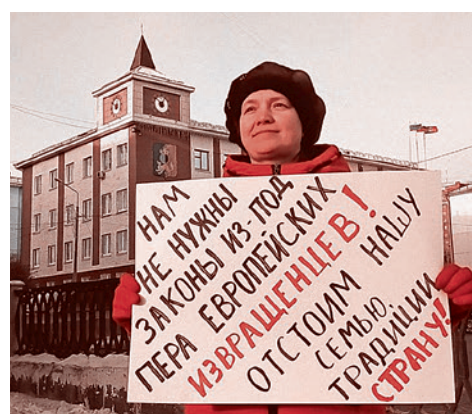 НАМ
НЕ НУЖНЫ
ЗАКОНЫ ИЗ-ПОД
ПЕРА ЕВРОПЕЙСКИХ
ИЗВРАЩЕНЦЕВ!
ОТСТОИМ НАШУ
СЕМЬЮ,
ТРАДИЦИИ
СТРАНУ!